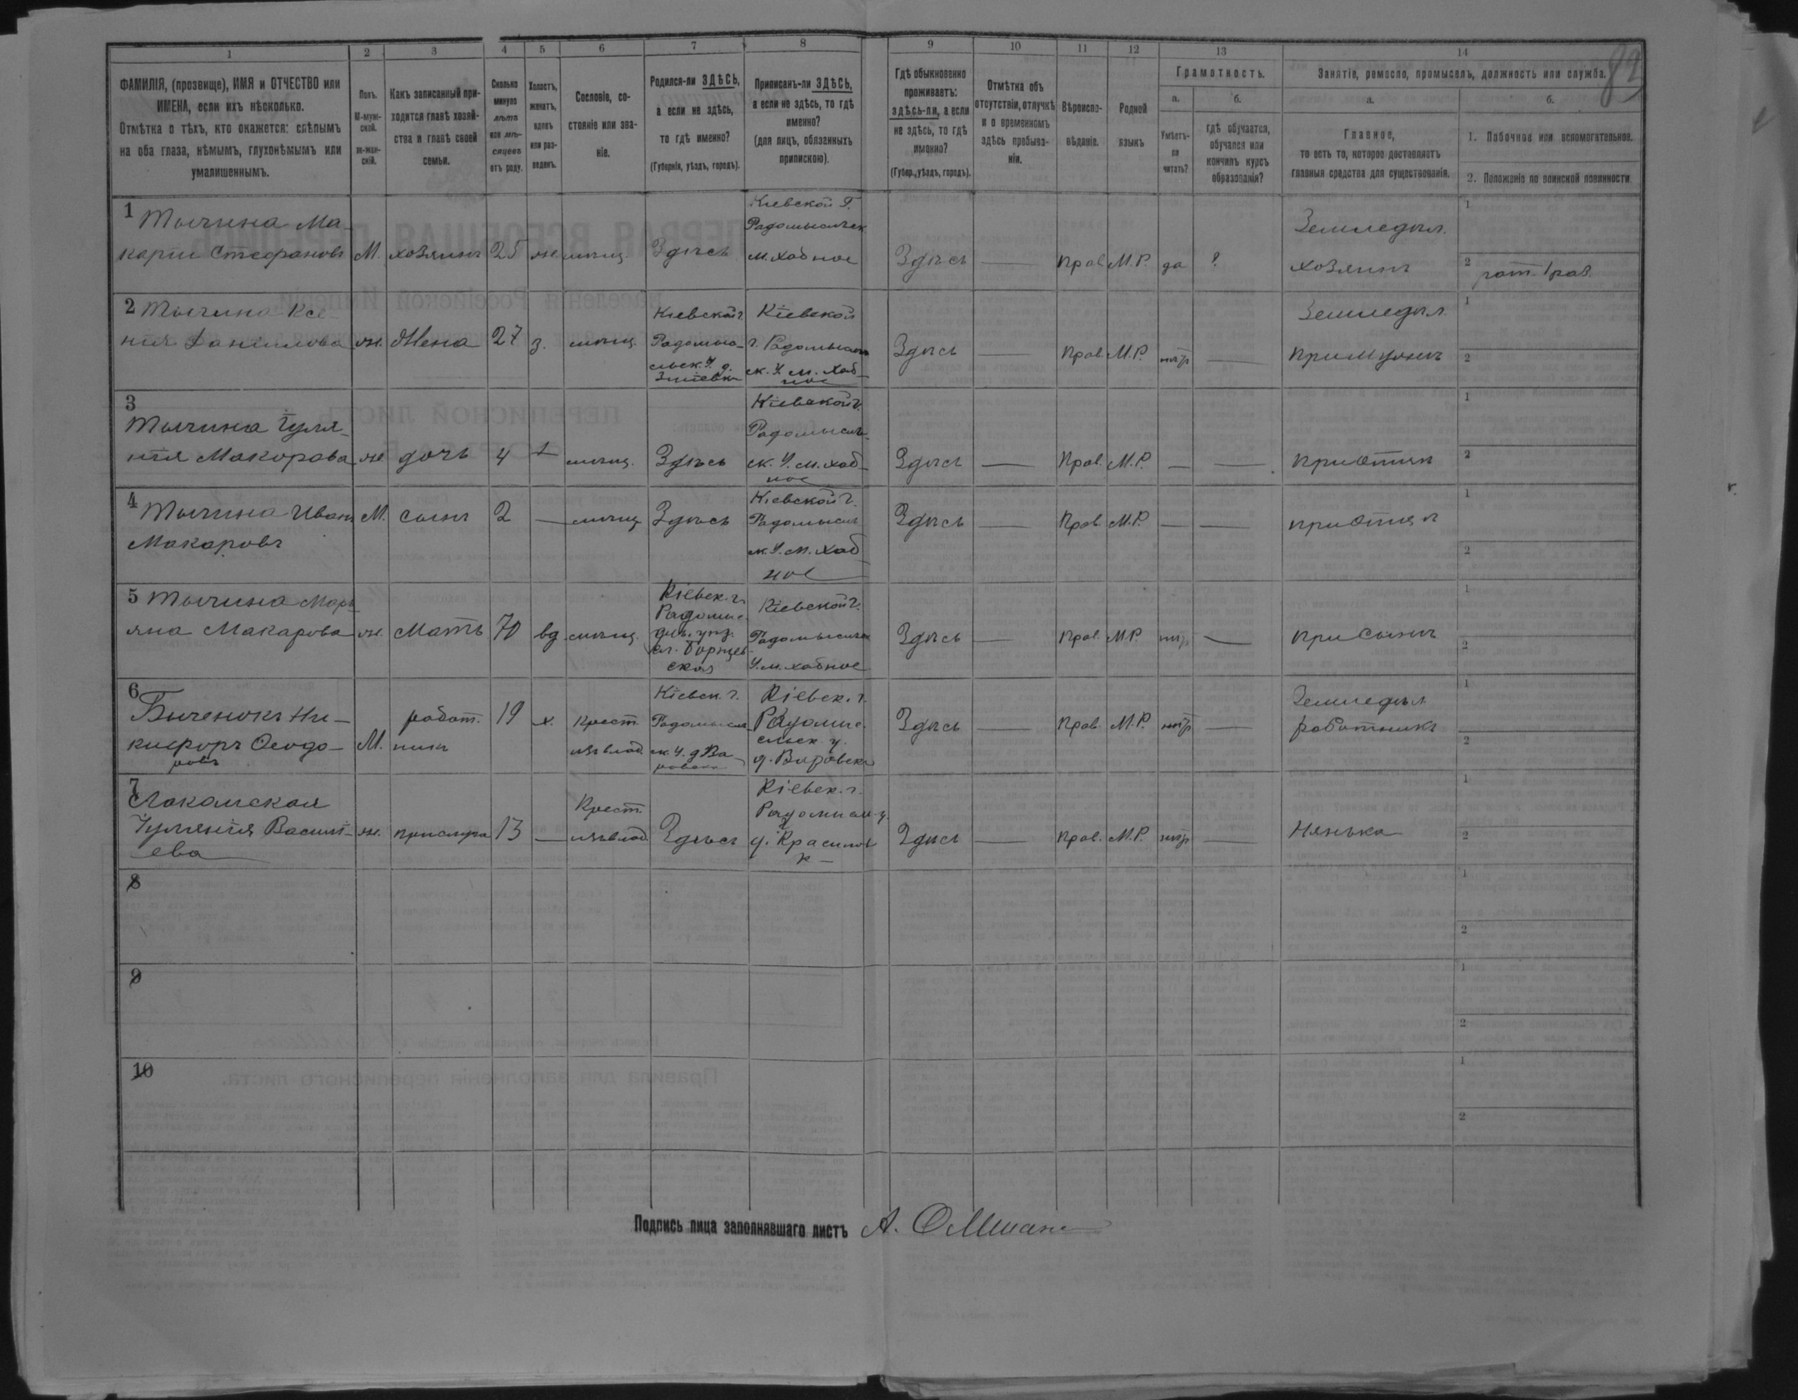 83
1 2 3 4 5 6 7 8 9 10 11 12 13 14
ФАМИЛІЯ, (прозвище), ИМЯ и ОТЧЕСТВО или
ИМЕНА, если ихъ нѣсколько.
Отмѣтка о тѣхъ, кто окажется: слѣпымъ
на оба глаза, нѣмымъ, глухонѣмымъ или
умалишеннымъ.
Полъ.
М-муж-
ской.
ж-жен-
скій.
Какъ записанный при-
ходится главѣ хозяй-
ства и главѣ своей
семьи.
Сколько
минуло
лѣтъ
или мѣ-
сяцевъ
отъ роду.
Холостъ,
женатъ,
вдовъ
или раз-
веденъ.
Сословіе, со-
стояніе или зва-
ніе.
Родился-ли ЗДѢСЬ,
а если не здѣсь,
то гдѣ именно?
(Губернія, уѣздъ, городъ).
Приписанъ-ли ЗДѢСЬ,
а если не здѣсь, то гдѣ
именно?
(для лицъ, обязанныхъ
припискою).
Гдѣ обыкновенно
проживаетъ:
здѣсь-ли, а если
не здѣсь, то гдѣ
именно?
(Губер., уѣздъ, городъ).
Отмѣтка объ
отсутствіи, отлучкѣ
и о временномъ
здѣсь пребыва-
ніи.
Вѣроиспо-
вѣданіе.
Родной
языкъ
Грамотность.
а.
Умѣетъ-
ли
читать?
б.
гдѣ обучается,
обучался или
кончилъ курсъ
образованія?
Занятіе, ремесло, промыселъ, должность или служба.
а.
Главное,
то есть то, которое доставляетъ
главныя средства для существованія.
б.
1. Побочное или вспомогательное.
2. Положеніе по воинской повинности.
1 Тычина Ма-
карій Стефановъ М. хозяинъ 25 ж. мѣщ. Здѣсь
Кіевской Г.
Радомысльск.
м. Хабное
Здѣсь — Прав. М.Р. да ?
Земледѣл.
хозяинъ
1
2 рат. 1 раз.
2 Тычина Ксе-
нія Даніилова ж. Жена 27 з. мѣщ.
Кіевской г.
Радомы-
сльск. У. д.
Кіевской
г. Радомысль
ск. У. м. Хаб-
ное
Здѣсь — Прав. М.Р. нѣтъ —
Земледѣл.
при мужѣ
1
2
3
Тычина Іулі-
нія Макарова ж дочь 4 — мѣщ. Здѣсь
Кіевской г.
Радомысль-
ск. У. м. Хаб-
ное
Здѣсь — Прав. М.Р. — —
при отцѣ
1
2
4 Тычина Иванъ М. сынъ 2 — мѣщ. Здѣсь
Макаровъ
Кіевской г.
Радомысль
ск. У. м. Хаб
ное
Здѣсь — Прав. М.Р. — —
при отцѣ
1
2
5 Тычина Марь-
яна Макарова ж. Мать 70 вд. мѣщ.
Кіевск. г.
Радомыс.
Кіевской г.
Радомысльск
У. м. Хабное
Здѣсь — Прав. М.Р. нѣтъ —
при сынѣ
1
2
6
Биченокъ Ни-
кифоръ Ѳеодо-
ровъ
М. работ.
никъ
19 х.
Крест.
изъ влад.
Кіевск. г.
Радомысль
ск. У. д. Ва-
ровска
Кіевск. г.
Радомыс-
сльск. у.
д. Варовска
Здѣсь — Прав. М.Р. нѣтъ —
Земледѣл.
работникъ
1
2
7
Іуліянія Василі-
ева
ж. прислуга 13 —
Крест.
изъ влад.
Здѣсь
Кіевск. г.
д. Красилов
к —
Здѣсь — Прав. М.Р. нѣтъ —
Нянька
1
2
8
1
2
9
1
2
10
1
2
Подпись лица заполнявшаго листъ А.